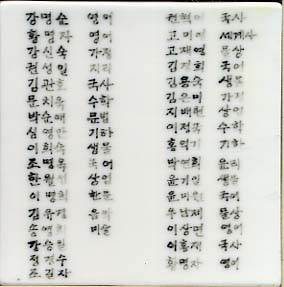 강명순 영어
황명자 영어
강신숙 가정
권성일 지리
김관호 국사
문치욱 수학
박순애 문법
심영만 기하
이희숙 생물
조명옥 국어
한월선 상업
이명 한문
김유경 음악
송 미술
강
전경수
조김자
권혁이 국사
고미 세계사
고재영 물상
김경희 국어
김용숙 생물
김은미 가정
지배헌 상업
이정국 수학
홍 기 기하
박연희 윤리
윤기일 생물
윤미 국어
우 제 물상
이상면 영어
이홍재 국사
황명자 영어